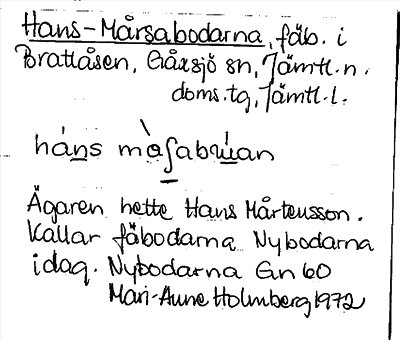 Hans-Mårsabodarna, fäb. i
Brattåsen, Gåxsjö sn, Jämtl. n.
doms. tg, Jämtl. l.
háns mòʃabu̗an
Ägaren hette Hans Mårtensson.
Kallar fäbodarna Nybodarna
idag. Nybodarna En 60
Mari-Anne Holmberg 1972